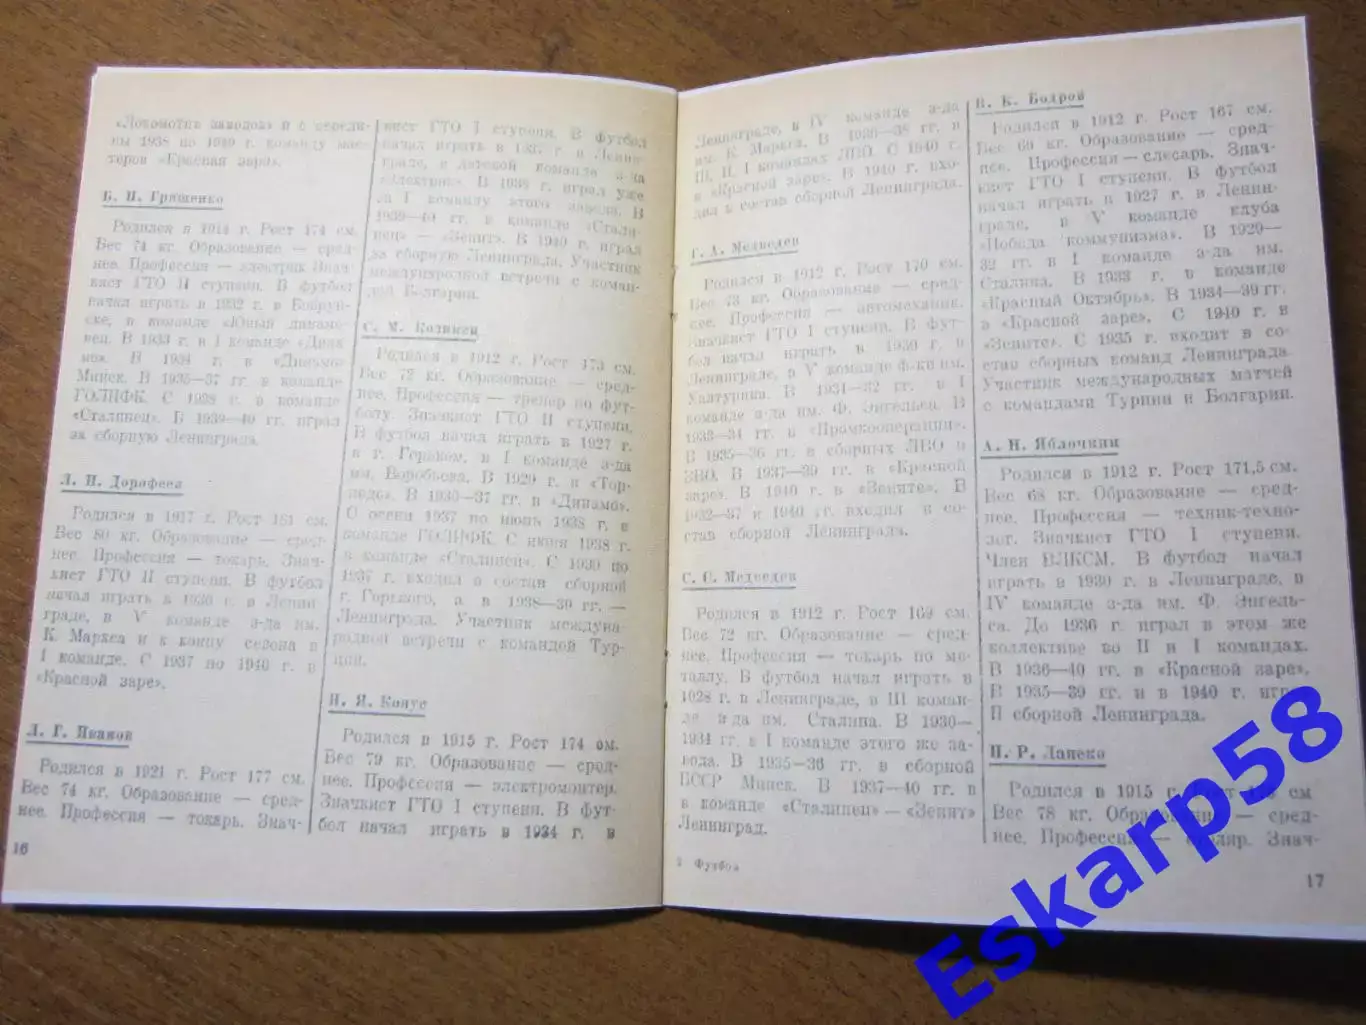 «Локомотив заводов» и с середи-
ны 1938 по 1939 г. команду мас-
теров «Красная заря».
Б. И. Грищенко
Родился в 1914 г. Рост 174 см.
Вес 74 кг. Образование — сред-
нее. Профессия — электрик Знач-
кист ГТО II ступени. В футбол
начал играть в 1932 г. в Бобруй-
ске, в команде «Юный динамо-
вец. В 1933 г. в I команде «Дина-
мо». В 1934 г. в «Динамо»
Минск. В 1935—37 гг. в команде
ГОЛИФК. С 1938 г. в команде
«Сталинец». В 1939—40 гг. играл
за сборную Ленинграда.
Л. Н. Дорофеев
Родился в 1917 г. Рост 181 см.
Вес 80 кг. Образование — сред-
нее. Профессия — токарь. Знач-
кист ГТО II ступени. В футбол
начал играть в 1930 г. в Ленин-
граде, в V команде з-да им.
К. Маркса и к концу сезона в
I команде. С 1937 по 1940 г. в
«Красной заре».
Л. Г. Иванов
Родился в 1921 г. Рост 177 см.
Вес 74 кг. Образование — сред-
нее. Профессия — токарь. Знач-
16
кист ГТО I ступени. В футбол
начал играть в г. в Ленин-
граде, в детской команде з-да
«Электрик». В 1938 г. играл уже
за I команду этого завода. В
1939—40 гг. в команде «Стали-
нец» — «Зенит». В 1940 г. играл
за сборную Ленинграда. Участник
международной встречи с коман-
дой Болгарии.
С. М. Козинец
Родился в 1912 г. Рост 173 см.
Вес 72 кг. Образование — сред-
нее. Профессия — тренер по фут-
болу. Значкист ГТО II ступени.
В футбол начал играть в 1927 г.
в г. Горьком, в I команде з-да
им. Воробьева. В 1929 г. в «Тор-
педо». В 1930—37 гг. в «Динамо».
С осени 1937 по июнь 1938 г. в
команде ГОЛИФК. С июня 1938 г.
в команде «Сталинец». С 1930 по
1937 г. входил в состав сборной
г. Горького, а в 1938—39 гг. —
Ленинграда. Участник междуна-
родной встречи с командой Тур-
ции.
И. Я. Конус
Родился в 1915 г. Рост 174 см.
Вес 79 кг. Образование — сред-
нее. Профессия — электромонтер.
Значкист ГТО I ступени. В фут-
бол начал играть в 1934 г. в
Ленинграде, в IV команде з-да
им. К. Маркса. В 1936—38 гг. в
III, II, I командах ЛВО. С 1940 г.
в «Красной заре». В 1940 г. вхо-
дил в состав сборной Ленинграда.
Г. А. Медведев
Родился в 1912 г. Рост 170 см.
Вес 73 кг. Образование — сред-
нее. Профессия — автомеханик.
Значкист ГТО I ступени. В фут-
бол начал играть в 1930 г. в
Ленинграде, в V команде ф-ки им.
Халтурина. В 1931—32 гг. в I
команде з-да им. Ф. Энгельса. В
1933—34 гг. в «Промкооперации».
В 1935—36 гг. в сборных ЛВО и
ЗВО. В 1937—39 гг. в «Красной
заре». В 1940 г. в «Зените». В
1932—37 и 1940 гг. входил в со-
став сборной Ленинграда.
С. С. Медведев
Родился в 1912 г. Рост 169 см.
Вес 72 кг. Образование — сред-
нее. Профессия — токарь по ме-
таллу. В футбол начал играть в
1928 г. в Ленинграде, в III коман-
де з-да им. Сталина. В 1930—
1934 гг. в I команде этого же за-
вода. В 1935—36 гг. в сборной
БССР Минск. В 1937—40 гг. в
в команде «Сталинец» — «Зенит»
Ленинград.
2 Футбол
П. К. Бодров
Родился в 1912 г. Рост 167 см.
Вес 69 кг. Образование — сред-
нее. Профессия — слесарь. Знач-
кист ГТО I ступени. В футбол
начал играть в 1927 г. в Ленин-
граде, в V команде клуба
«Победа коммунизма». В 1929—
32 гг. в I команде з-да им.
Сталина. В 1933 г. в команде
«Красный Октябрь». В 1934—39 гг.
в «Красной заре». С 1940 г. в
«Зените». С 1935 г. входит в со-
став сборных команд Ленинграда.
Участник международных матчей
с командами Турции и Болгарии.
А. Н. Яблочкин
Родился в 1912 г. Рост 171,5 см.
Вес 68 кг. Образование — сред-
нее. Профессия — техник-техно-
лог. Значкист ГТО I ступени.
Член ВЛКСМ. В футбол начал
играть в 1930 г. в Ленинграде, в
IV команде з-да им. Ф. Энгель-
са. До 1936 г. играл в этом же
коллективе во II и I командах.
В 1936—40 гг. в «Красной заре».
В 1935—39 гг. и в 1940 г. играл
II сборной Ленинграда.
П. Р. Лапеко
Родился в 1915 г. Рост см
Вес 78 кг. Образование — сред-
нее. Профессия — Знач-
17
Eskarp58